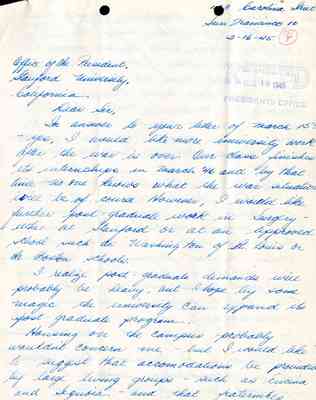 Carolina Street
San Francisco 10
3-16-45
Office of the President,
Stanford University,
California.
PRESIDENT'S OFFICE
Dear Sir,
In answer to your letter of March 15th
- yes, I would like more university work
after the war is over. Our class finishes
its internships in March 46 and by that
time no one knows what the war situation
will be of course. However, I would like
further post-graduate work in Surgery -
either at Stanford or at an approved
school such as Washington of St. Louis or
the Boston schools.
I realize post graduate demands will
probably be many, but I hope by some
magic the university can expand its
post graduate program.
Housing on the campus probably
wouldn't concern me, but I would like
to suggest that accomodations be provided
by large living groups - such as Encina
and Sequoia - and that fraternities